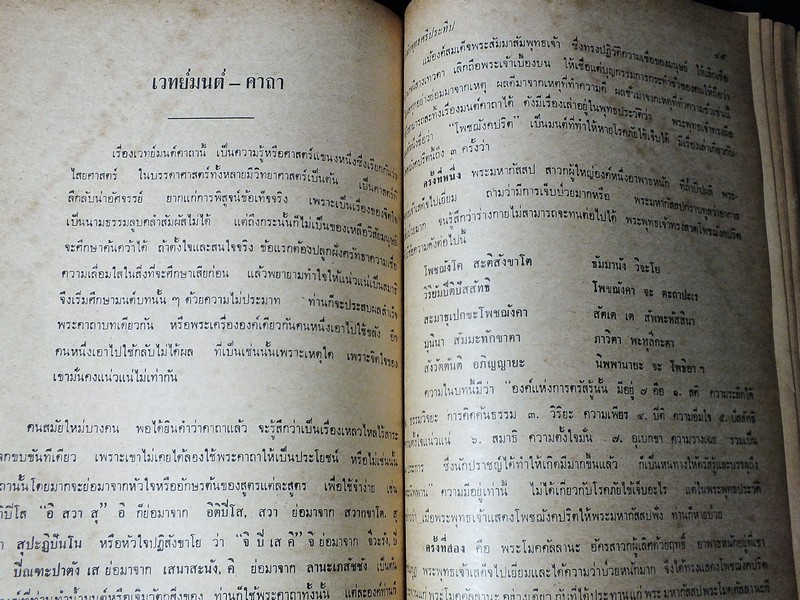 เวทย์มนต์ – คาถา
เรื่องเวทย์มนต์คาถานี้ เป็นความรู้หรือศาสตร์แขนงหนึ่งซึ่งเรียกกันว่า
ไสยศาสตร์ ในบรรดาศาสตร์ทั้งหลายมีวิทยาศาสตร์เป็นต้น เป็นศาสตร์ที่
ลึกลับน่าอัศจรรย์ ยากแก่การพิสูจน์ข้อเท็จจริง เพราะเป็นเรื่องของจิตใจ
เป็นนามธรรมลูบคลำสัมผัสไม่ได้ แต่ถึงกระนั้นก็ไม่เป็นของเหลือวิสัยมนุษย์
จะศึกษาค้นคว้าได้ ถ้าตั้งใจและสนใจจริง ข้อแรกต้องปลูกฝังศรัทธาความเชื่อ
ความเลื่อมใสในสิ่งที่จะศึกษาเสียก่อน แล้วพยายามทำใจให้แน่วแน่เป็นสมาธิ
จึงเริ่มศึกษามนต์บทนั้น ๆ ด้วยความไม่ประมาท ท่านก็จะประสบผลสำเร็จ
พระคาถาบทเดียวกัน หรือพระเครื่ององค์เดียวกันคนหนึ่งเอาไปใช้ขลัง อีก
คนหนึ่งเอาไปใช้กลับไม่ได้ผล ที่เป็นเช่นนั้นเพราะเหตุใด เพราะจิตใจของ
เขามั่นคงแน่วแน่ไม่เท่ากัน
คนสมัยใหม่บางคน พอได้ยินคำว่าคาถาแล้ว จะรู้สึกว่าเป็นเรื่องเหลวไหลไร้สาระ
ขบขันทีเดียว เพราะเขาไม่เคยได้ลองใช้พระคาถาให้เป็นประโยชน์ หรือไม่เช่นนั้น
โดยมากจะย่อมาจากหัวใจหรืออักษรต้นของสูตรแต่ละสูตร เพื่อใช้จำง่าย เช่น
"อิ สวา สุ" อิ ก็ย่อมาจาก อิติปิโส, สวา ย่อมาจาก สวากขาโต. สุ
สุปะฏิปันโน หรือหัวใจปฏิสังขาโย ว่า "จิ ปิ เส คิ" จิ ย่อมาจาก จีวะรัง, ปิ
ปิณฑะปาตัง เส ย่อมาจาก เสนาสะนัง, คิ ย่อมาจาก ลานะเภสัชชัง เป็นต้น
ที่ท่านทำน้ำมนต์หรือเจิมวัตถุสิ่งของ ท่านก็ใช้พระคาถาทั้งนั้น แต่ละองค์ท่านก็
๑๕
แม้องค์สมเด็จพระสัมมาสัมพุทธเจ้า ซึ่งทรงปฏิวัติความเชื่อของมนุษย์ ให้เลิกเชื่อ
เลิกถือพระเจ้าเบื้องบน ให้เชื่อแต่บุญกรรมการกระทำชั่วของคนให้ถือว่า
ย่อมมาจากเหตุ ผลดีมาจากเหตุที่ทำความดี ผลชั่วมาจากเหตุที่ทำความชั่วเช่นนี้
เรื่องมนต์คาถาได้ ดังมีเรื่องเล่าอยู่ในพุทธประวัติว่า พระพุทธเจ้าทรงถือ
ชื่อว่า "โพชฌังคปริต" เป็นมนต์ที่ทำให้หายโรคภัยไข้เจ็บได้ มีเรื่องเล่าเกี่ยวกับ
ถึง ๓ ครั้งว่า
ครั้งที่หนึ่ง พระมหากัสสป สาวกผู้ใหญ่องค์หนึ่งอาพาธหนัก ที่ถ้ำปิปผลิ พระ-
เสด็จไปเยี่ยม ถามว่ามีการเจ็บป่วยมากหรือ พระมหากัสสปกราบทูลว่าอาการ
มาก จนรู้สึกว่าร่างกายไม่สามารถจะทนต่อไปได้ พระพุทธเจ้าทรงสวดโพชฌังคปริต
ความดังต่อไปนี้
โพชฌังโค สะติสังขาโต ธัมมานัง วิจะโย
วิริยัมปิติปัสสัทธิ โพชฌังคา จะ ตะถาปะเร
สะมาธุเปกขะโพชฌังคา สัตเต เต สัพพะทัสสินา
มุนินา สัมมะทักขาตา ภาวิตา พะหุลีกะตา
สังวัตตันติ อภิญญายะ นิพพานายะ จะ โพธิยา ฯ
ความในบทนี้มีว่า "องค์แห่งการตรัสรู้นั้น มีอยู่ ๗ คือ ๑. สติ ความระลึกได้
ธรรมวิจยะ การคิดค้นธรรม ๓. วิริยะ ความเพียร ๔. ปีติ ความอิ่มใจ ๕. ปัสสัทธิ
ใจแน่วแน่ ๖. สมาธิ ความตั้งใจมั่น ๗. อุเบกขา ความวางเฉย รวมเป็น
ประการ ซึ่งนักปราชญ์ได้ทำให้เกิดมีมากขึ้นแล้ว ก็เป็นหนทางให้ตรัสรู้และบรรลุถึง
ความมีอยู่เท่านี้ ไม่ได้เกี่ยวกับโรคภัยไข้เจ็บอะไร แต่ในพระพุทธประวัติ
ว่า เมื่อพระพุทธเจ้าแสดงโพชฌังคปริตให้พระมหากัสสปฟัง ท่านก็หายป่วย
ครั้งที่สอง คือ พระโมคคัลลานะ อัครสาวกผู้เลิศด้วยฤทธิ์ อาพาธหนักอยู่ที่เขา
พระพุทธเจ้าเสด็จไปเยี่ยมและได้ความว่าป่วยหนักมาก จึงได้ทรงแสดงโพชฌังคปริต
แก่ พระโมคคัลลานะ อย่างเดียว กับที่ได้ประทานแก่ พระมหากัสสปพระโมคคัลลานะก็